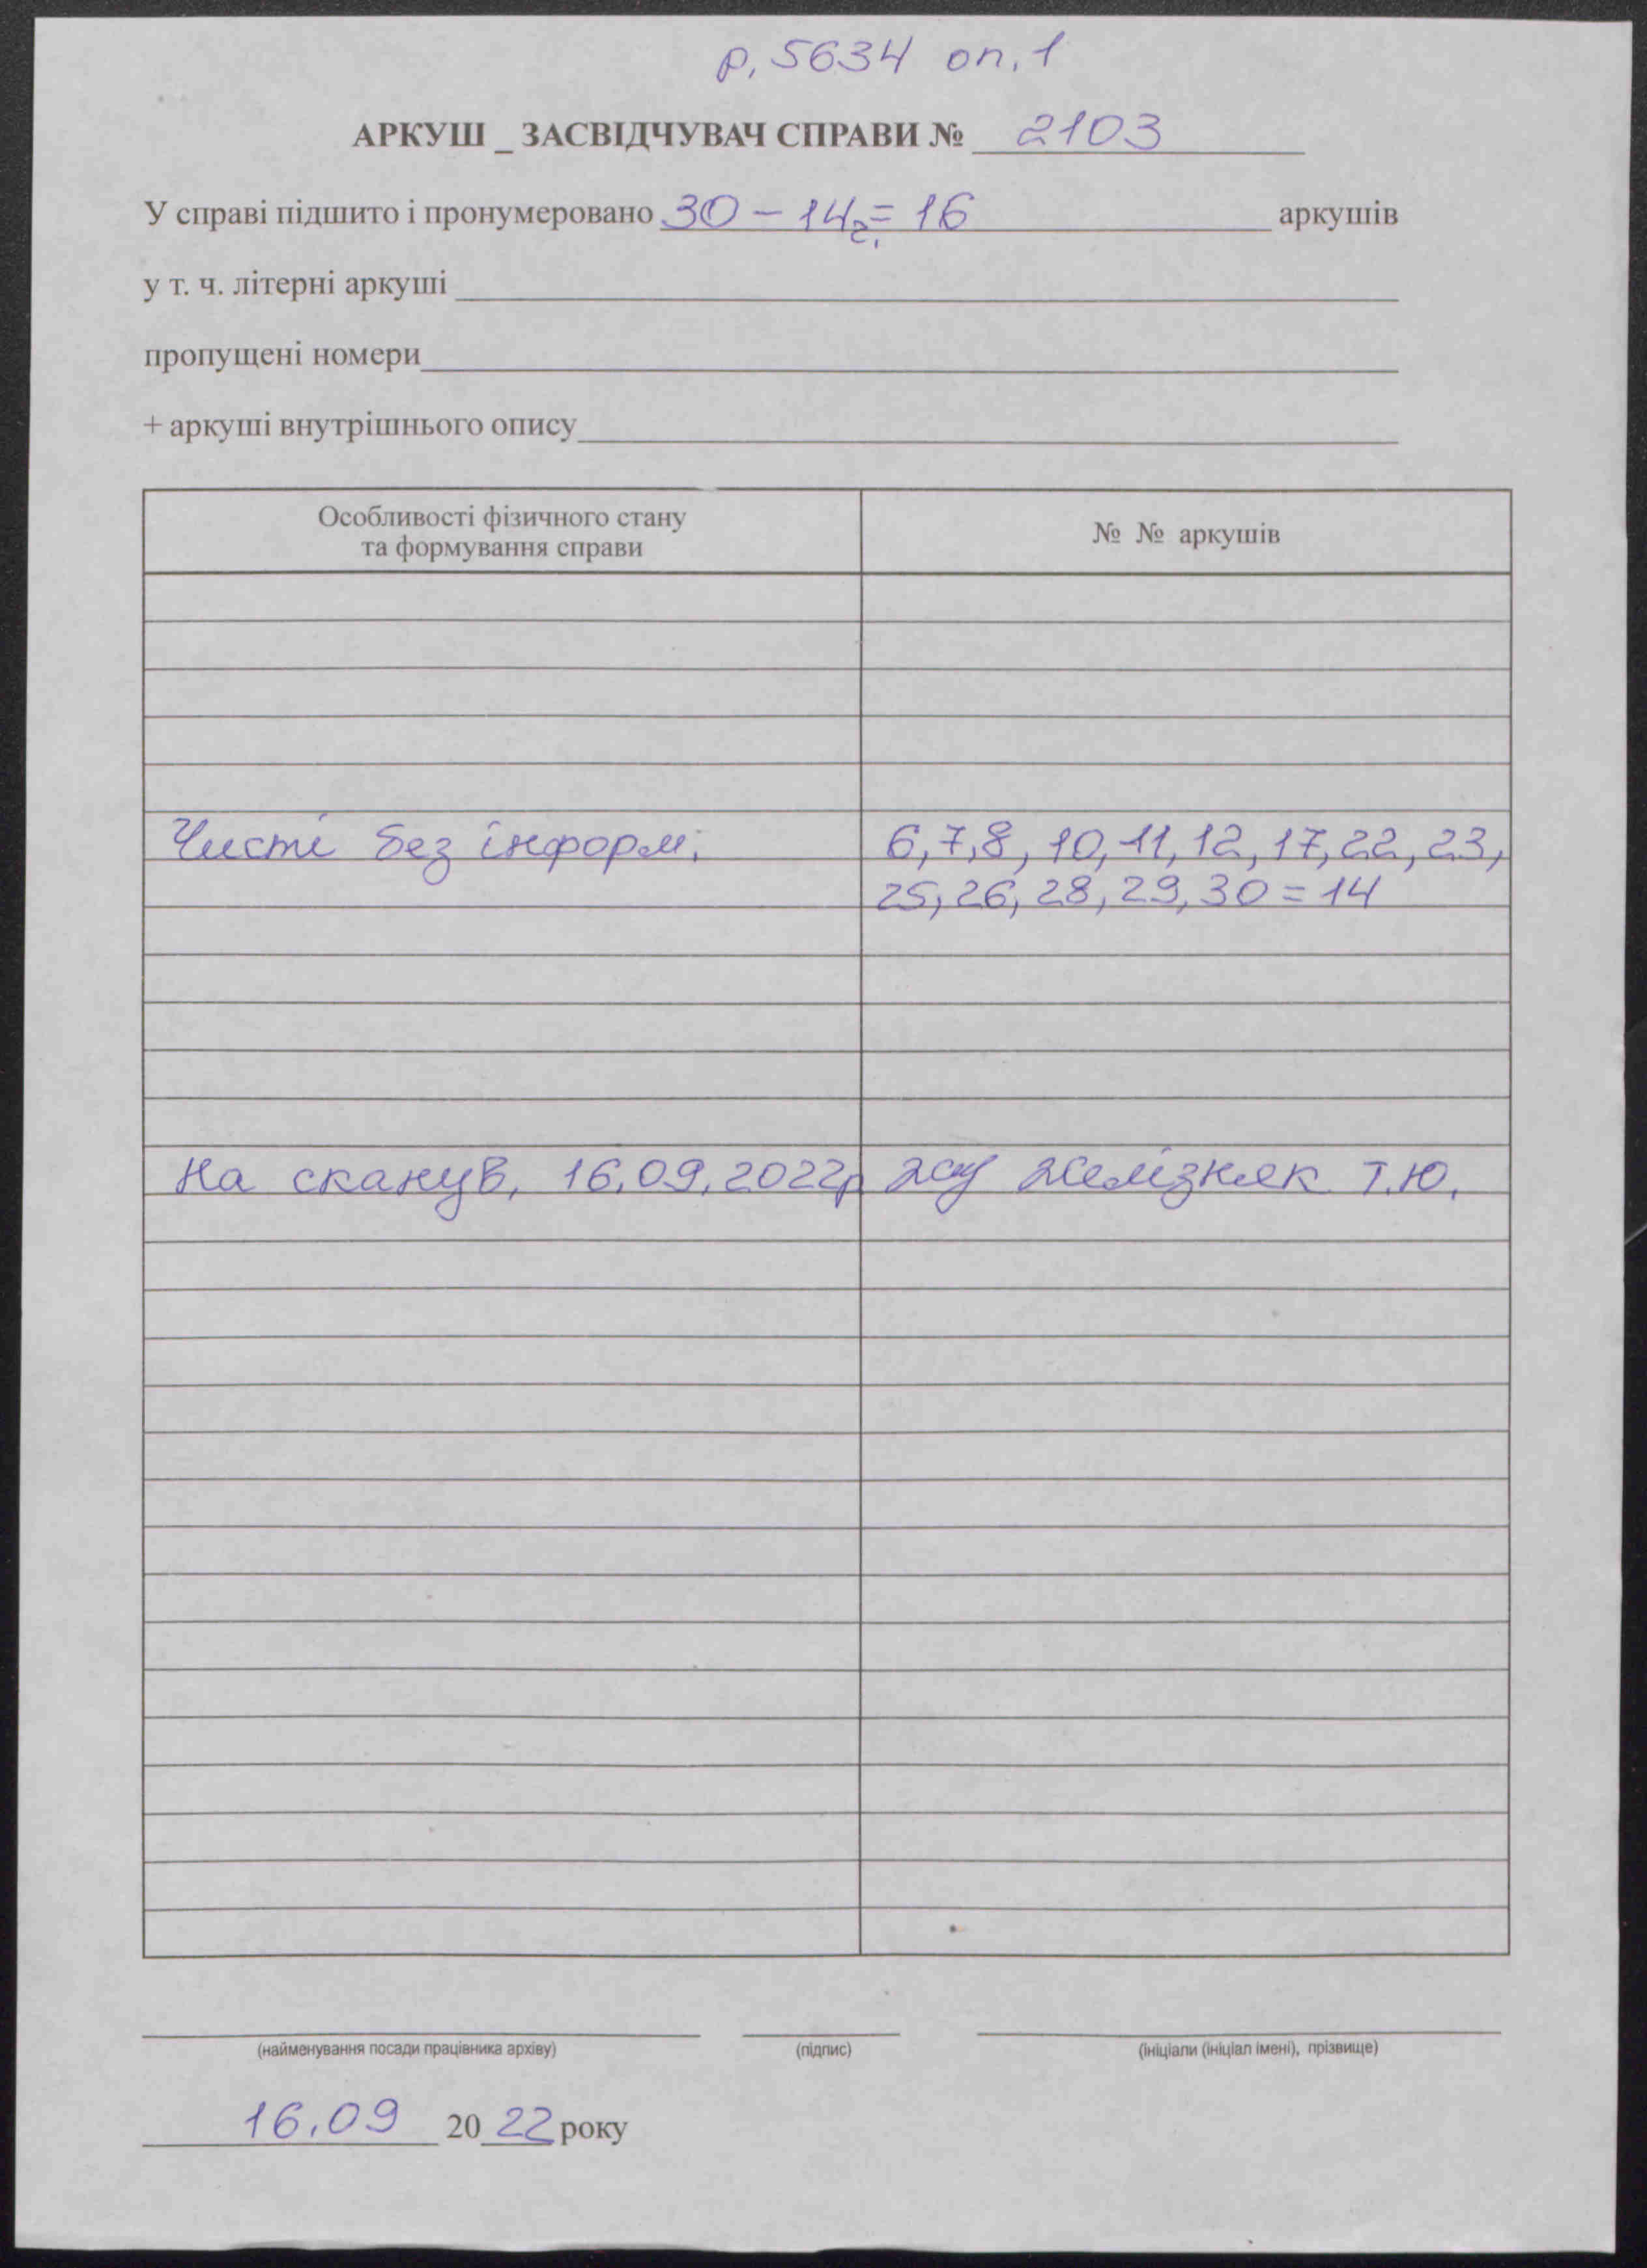 р. 5634 оп. 1
АРКУШ _ ЗАСВІДЧУВАЧ СПРАВИ № 2103
У справі підшито і пронумеровано 30 – 14 = 16 аркушів
у т. ч. літерні аркуші
пропущені номери
+ аркуші внутрішнього опису
Особливості фізичного стану
та формування справи
№ № аркушів
Чисті без інформ. 6, 7, 8, 10, 11, 12, 17, 22, 23,
25, 26, 28, 29, 30 = 14
На сканув. 16.09.2022р Желізняк Т.Ю.
(найменування посади працівника архіву) (підпис) (ініціали (ініціал імені), прізвище)
16.09 2022 року